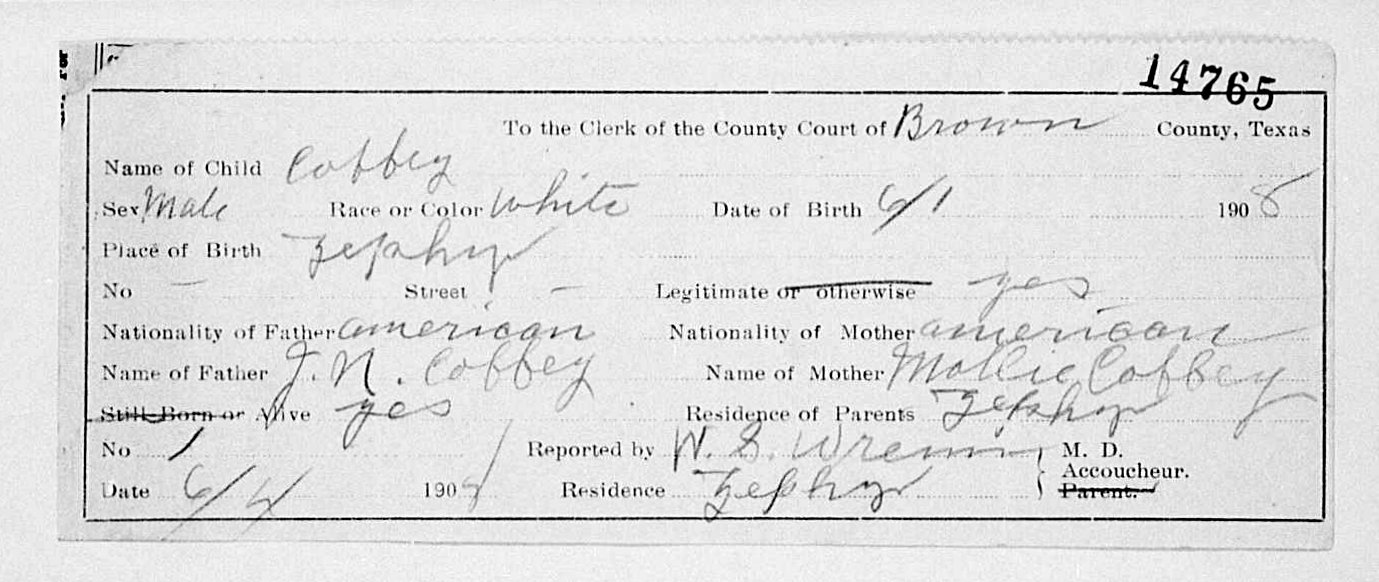 14765
To the Clerk of the County Court of Brown County, Texas
Name of Child Coffey
Sex Male Race or Color White Date of Birth 6/1 1908
Place of Birth Zephyr
No — Street — Legitimate or otherwise yes
Nationality of Father american Nationality of Mother american
Name of Father J. N. Coffey Name of Mother Mollie Coffey
Still Born or Alive yes Residence of Parents Zephyr
No 1 Reported by W. S. M. D.
Accoucheur.
Date 6/4 190 Residence Zephyr Parent.